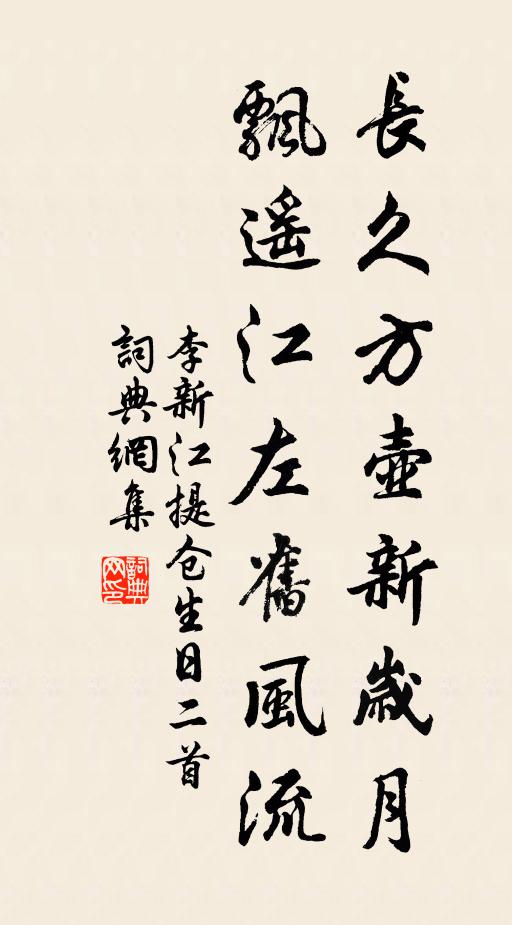 長久方壺新歲月
飄遥江左舊風流
李新江提仓生日二首
詞典網集
詞典网印